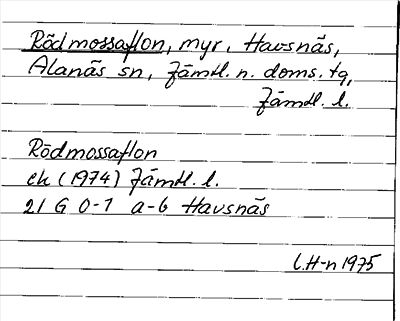 Rödmossaflon, myr, Havsnäs,
Alanäs sn, Jämtl. n. doms. tg,
Jämtl. l.
Rödmossaflon
ek (1974) Jämtl. l.
21 G 0-1 a-b Havsnäs
L.H-n 1975